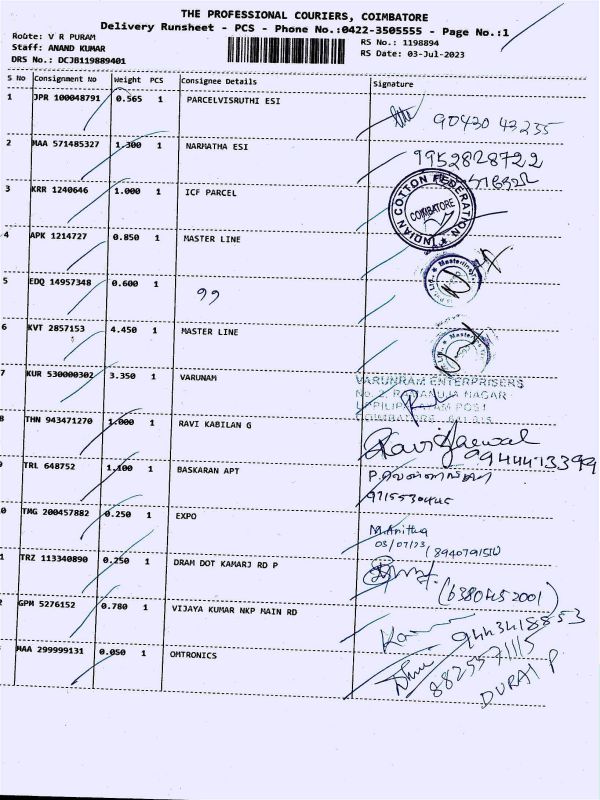 THE PROFESSIONAL COURIERS, COIMBATORE
Delivery Runsheet - PCS - Phone No.:0422-3505555 - Page No.:1
Route: V R PURAM
Staff: ANAND KUMAR
DRS No.: DCJB119889401
RS No.: 1198894
RS Date: 03-Jul-2023
S No Consignment No Weight PCS Consignee Details Signature
1 JPR 100048791 0.565 1 PARCELVISRUTHI ESI 90430 43255
2 MAA 571485327 1.300 1 NARMATHA ESI 9952828722
3 KRR 1240646 1.000 1 ICF PARCEL INDIAN COTTON FEDERATION COIMBATORE
4 APK 1214727 0.850 1 MASTER LINE
5 EDQ 14957348 0.600 1 99
6 KVT 2857153 4.450 1 MASTER LINE
7 KUR 530000302 3.350 1 VARUNAM
VARUNRAM ENTERPRISERS
No. 2, RAMANUJA NAGAR
UPPILIPALAYAM POST
COIMBATORE - 641 015
8 THN 943471270 1.000 1 RAVI KABILAN G
9944473399
9 TRL 648752 1.100 1 BASKARAN APT
9715530445
0 TMG 200457882 0.250 1 EXPO M.Anitha
03/07/23
1 TRZ 113340890 0.250 1 DRAM DOT KAMARJ RD P
(6380452001)
2 GPM 5276152 0.780 1 VIJAYA KUMAR NKP MAIN RD 9443418853
MAA 299999131 0.050 1 OMTRONICS 8825571115
DURAI P